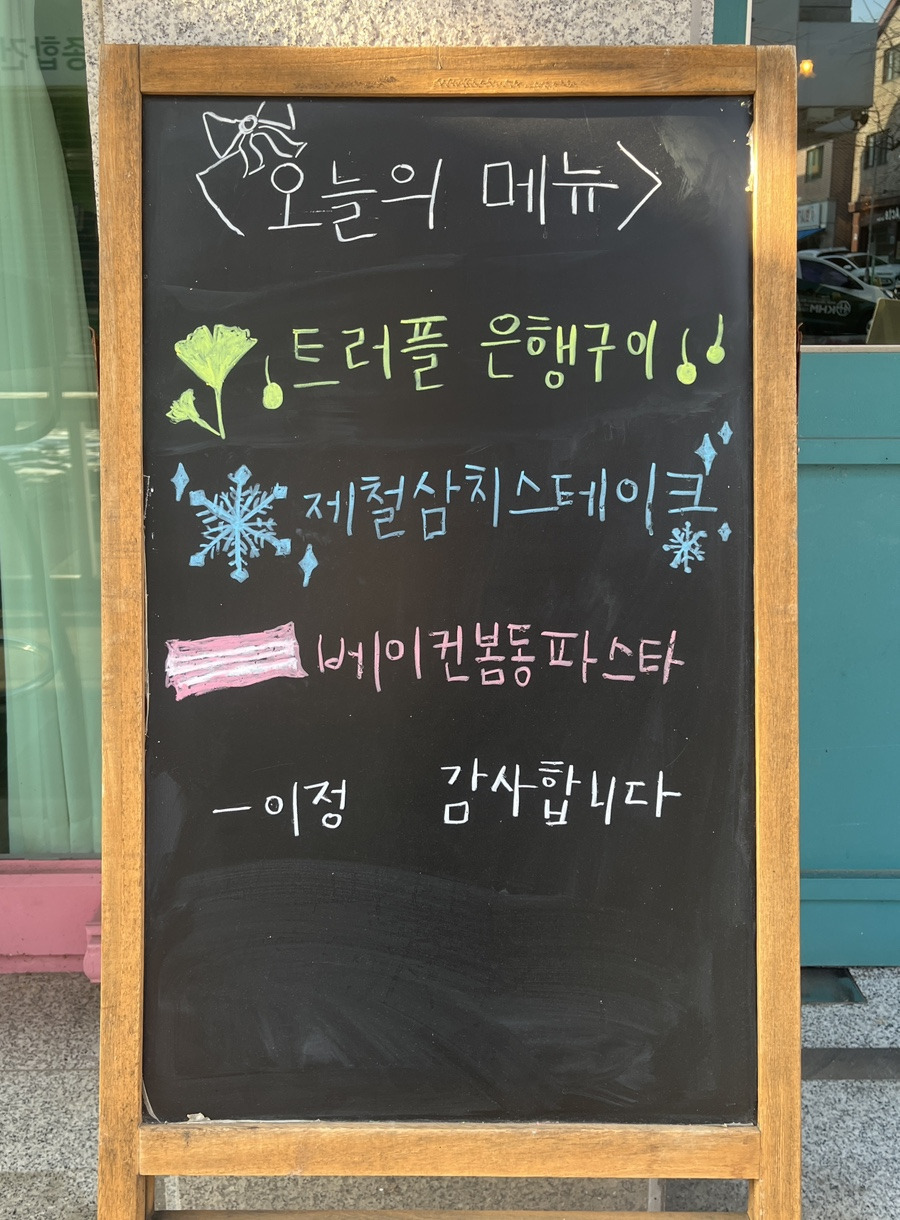 <오늘의 메뉴>
트러플 은행구이
제철삼치스테이크
베이컨봄동파스타
-이정 감사합니다